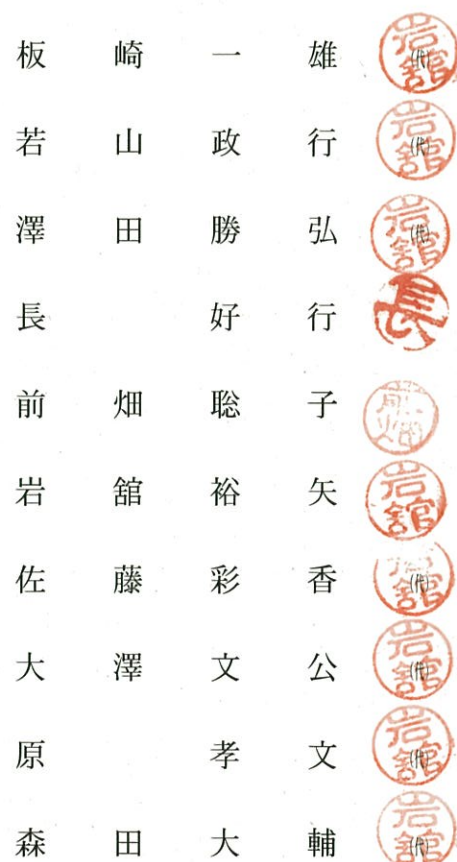 板崎一雄 岩舘 (代)
若山政行 岩舘 (代)
澤田勝弘 岩舘 (代)
長 好行 長
前畑聡子 前畑
岩舘裕矢 岩舘
佐藤彩香 岩舘 (代)
大澤文公 岩舘 (代)
原 孝文 岩舘 (代)
森田大輔 岩舘 (代)